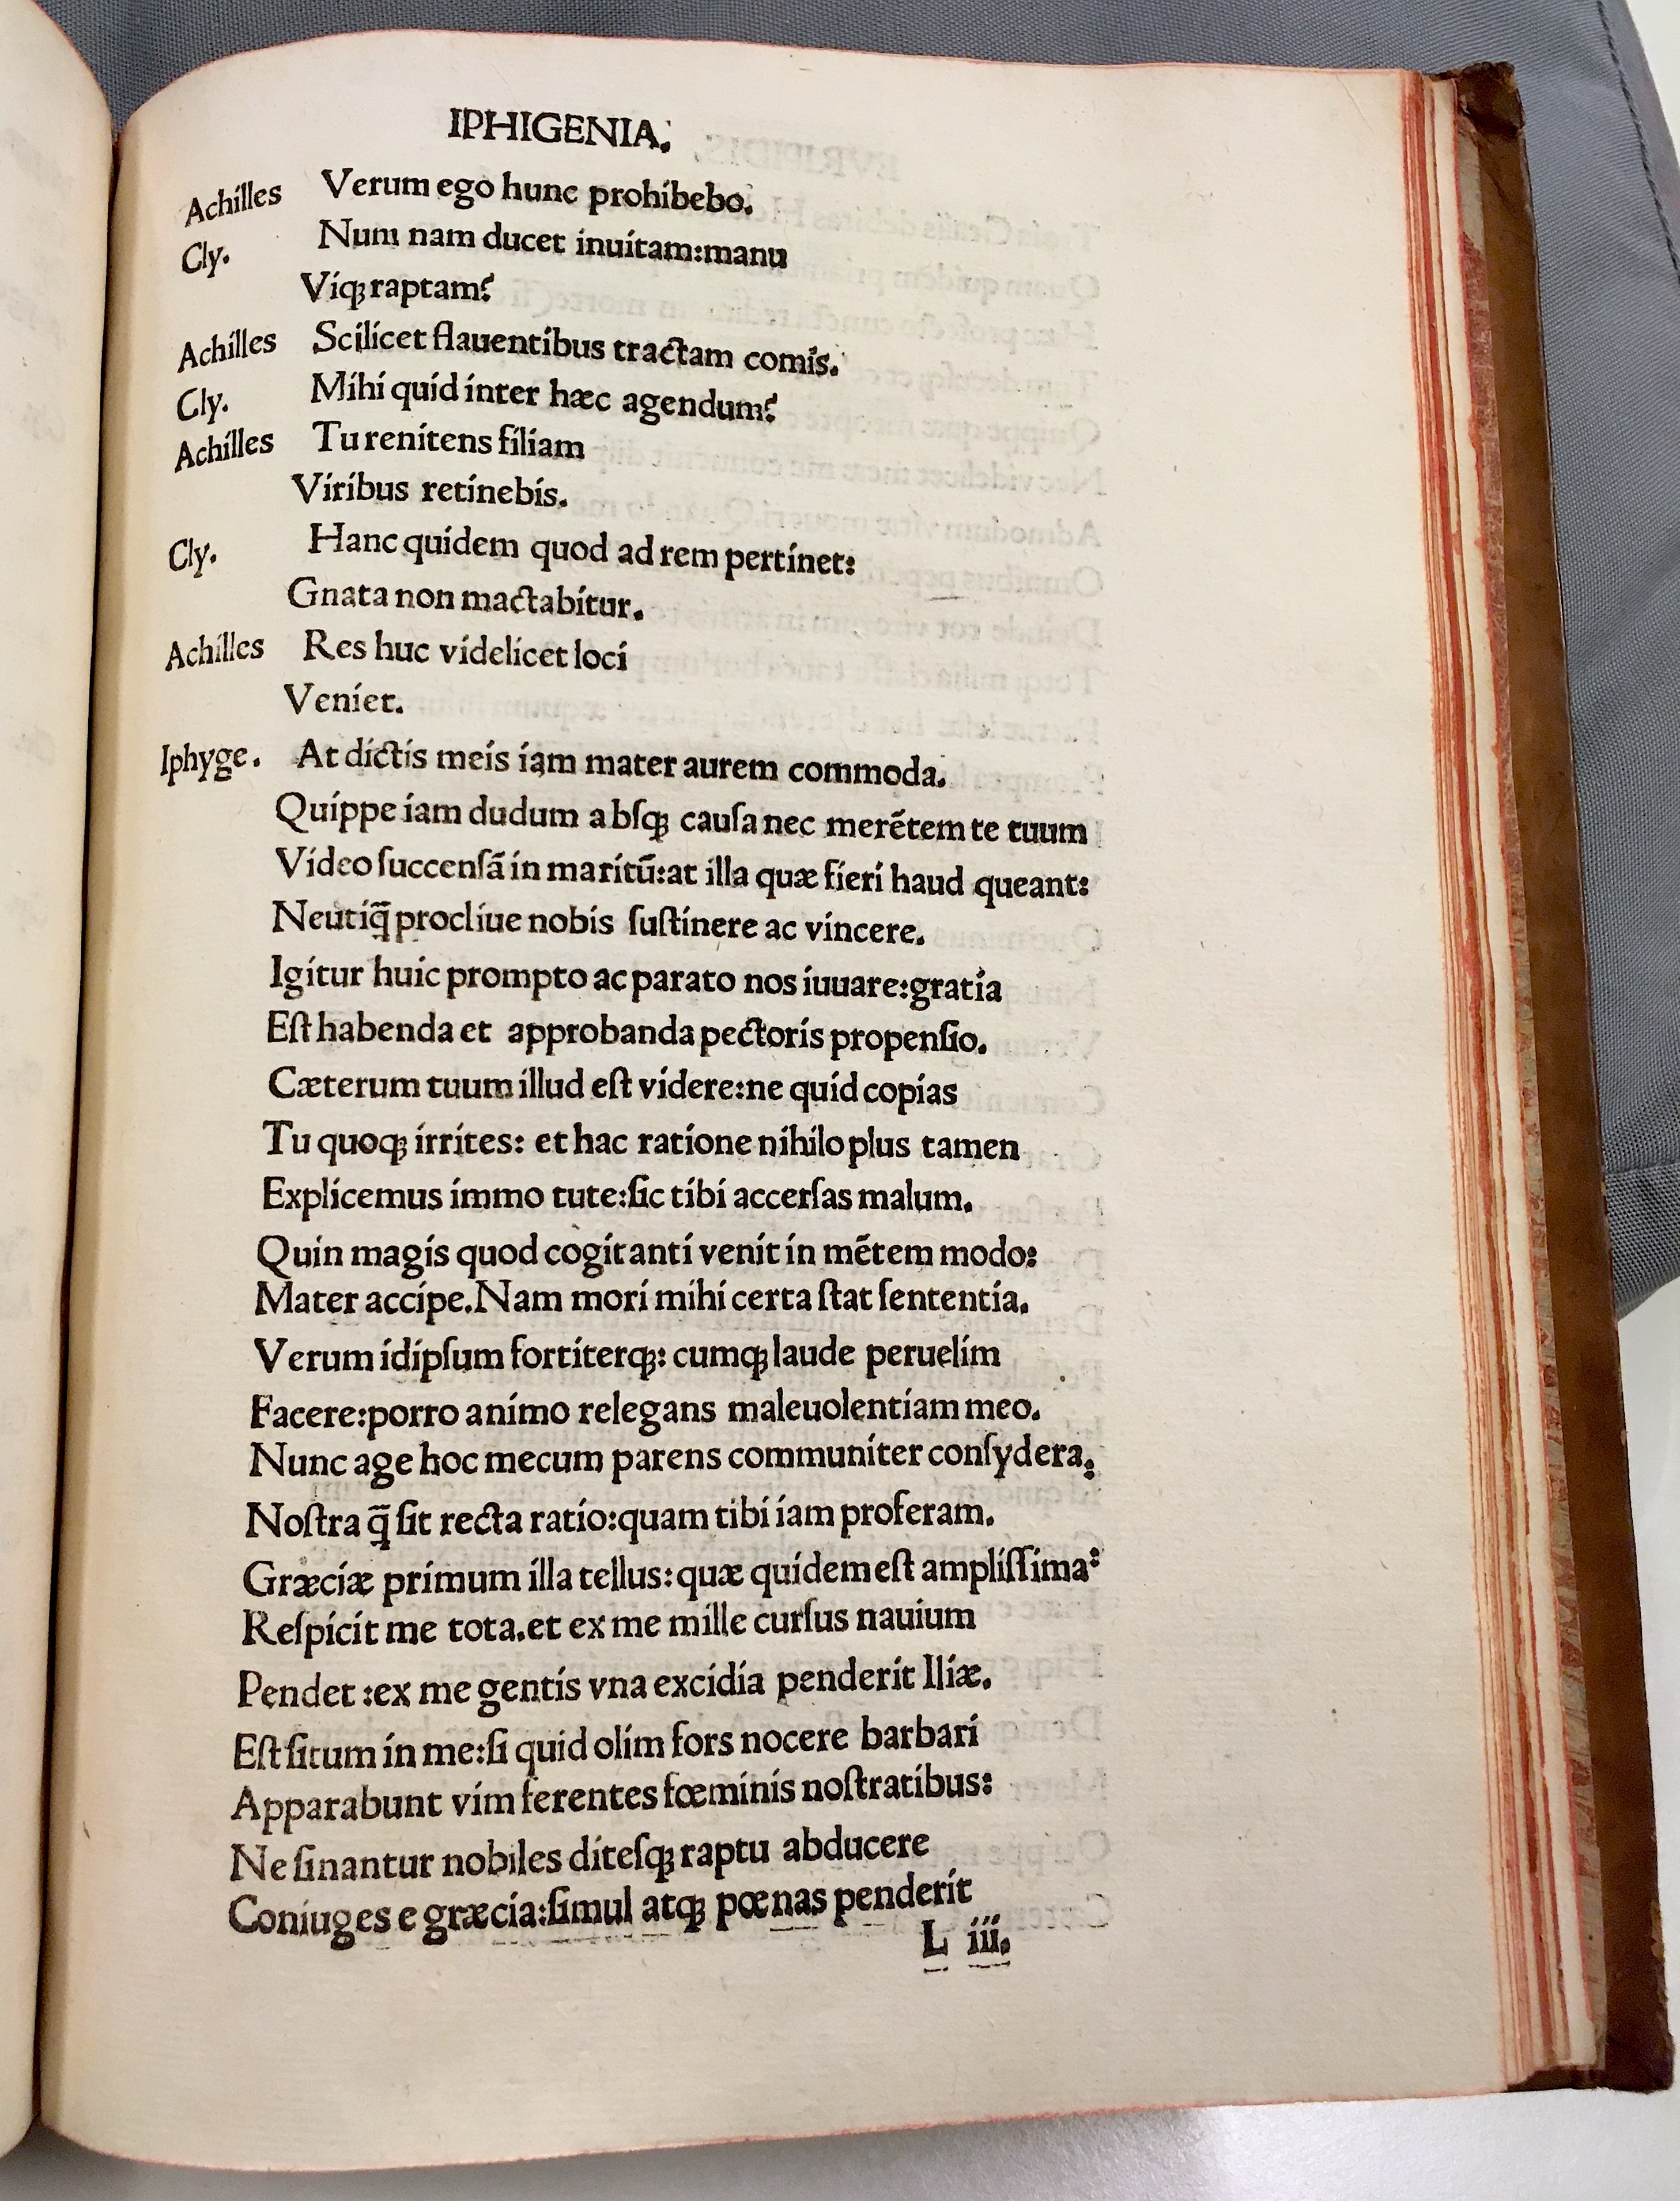 IPHIGENIA.
Achilles Verum ego hunc prohibebo.
Cly. Num nam ducet inuitam:manu
Viqꝫ raptam?
Achilles Scilicet flauentibus tractam comis.
Cly. Mihi quid inter hæc agendum?
Achilles Tu renitens filiam
Viribus retinebis.
Cly. Hanc quidem quod ad rem pertinet:
Gnata non mactabitur.
Achilles Res huc videlicet loci
Veniet.
Iphyge. At dictis meis iam mater aurem commoda.
Quippe iam dudum absqꝫ cauſa nec merẽtem te tuum
Video ſuccenſã in maritũ:at illa quæ fieri haud queant:
Neutiq̃ procliue nobis ſuſtinere ac vincere.
Igitur huic prompto ac parato nos iuuare:gratia
Eſt habenda et approbanda pectoris propenſio.
Cæterum tuum illud eſt videre:ne quid copias
Tu quoqꝫ irrites: et hac ratione nihilo plus tamen
Explicemus immo tute:ſic tibi accerſas malum.
Quin magis quod cogitanti venit in mẽtem modo:
Mater accipe.Nam mori mihi certa ſtat ſententia.
Verum idipſum fortiterqꝫ: cumqꝫ laude peruelim
Facere:porro animo relegans maleuolentiam meo.
Nunc age hoc mecum parens communiter conſydera.
Noſtra q̃ ſit recta ratio:quam tibi iam proferam.
Græciæ primum illa tellus:quæ quidem eſt ampliſſima:
Reſpicit me tota.et ex me mille curſus nauium
Pendet :ex me gentis vna excidia penderit Iliæ.
Eſt ſitum in me:ſi quid olim fors nocere barbari
Apparabunt vim ferentes fœminis noſtratibus:
Ne ſinantur nobiles diteſqꝫ raptu abducere
Coniuges e græcia:ſimul atqꝫ pœnas penderit
L iii.